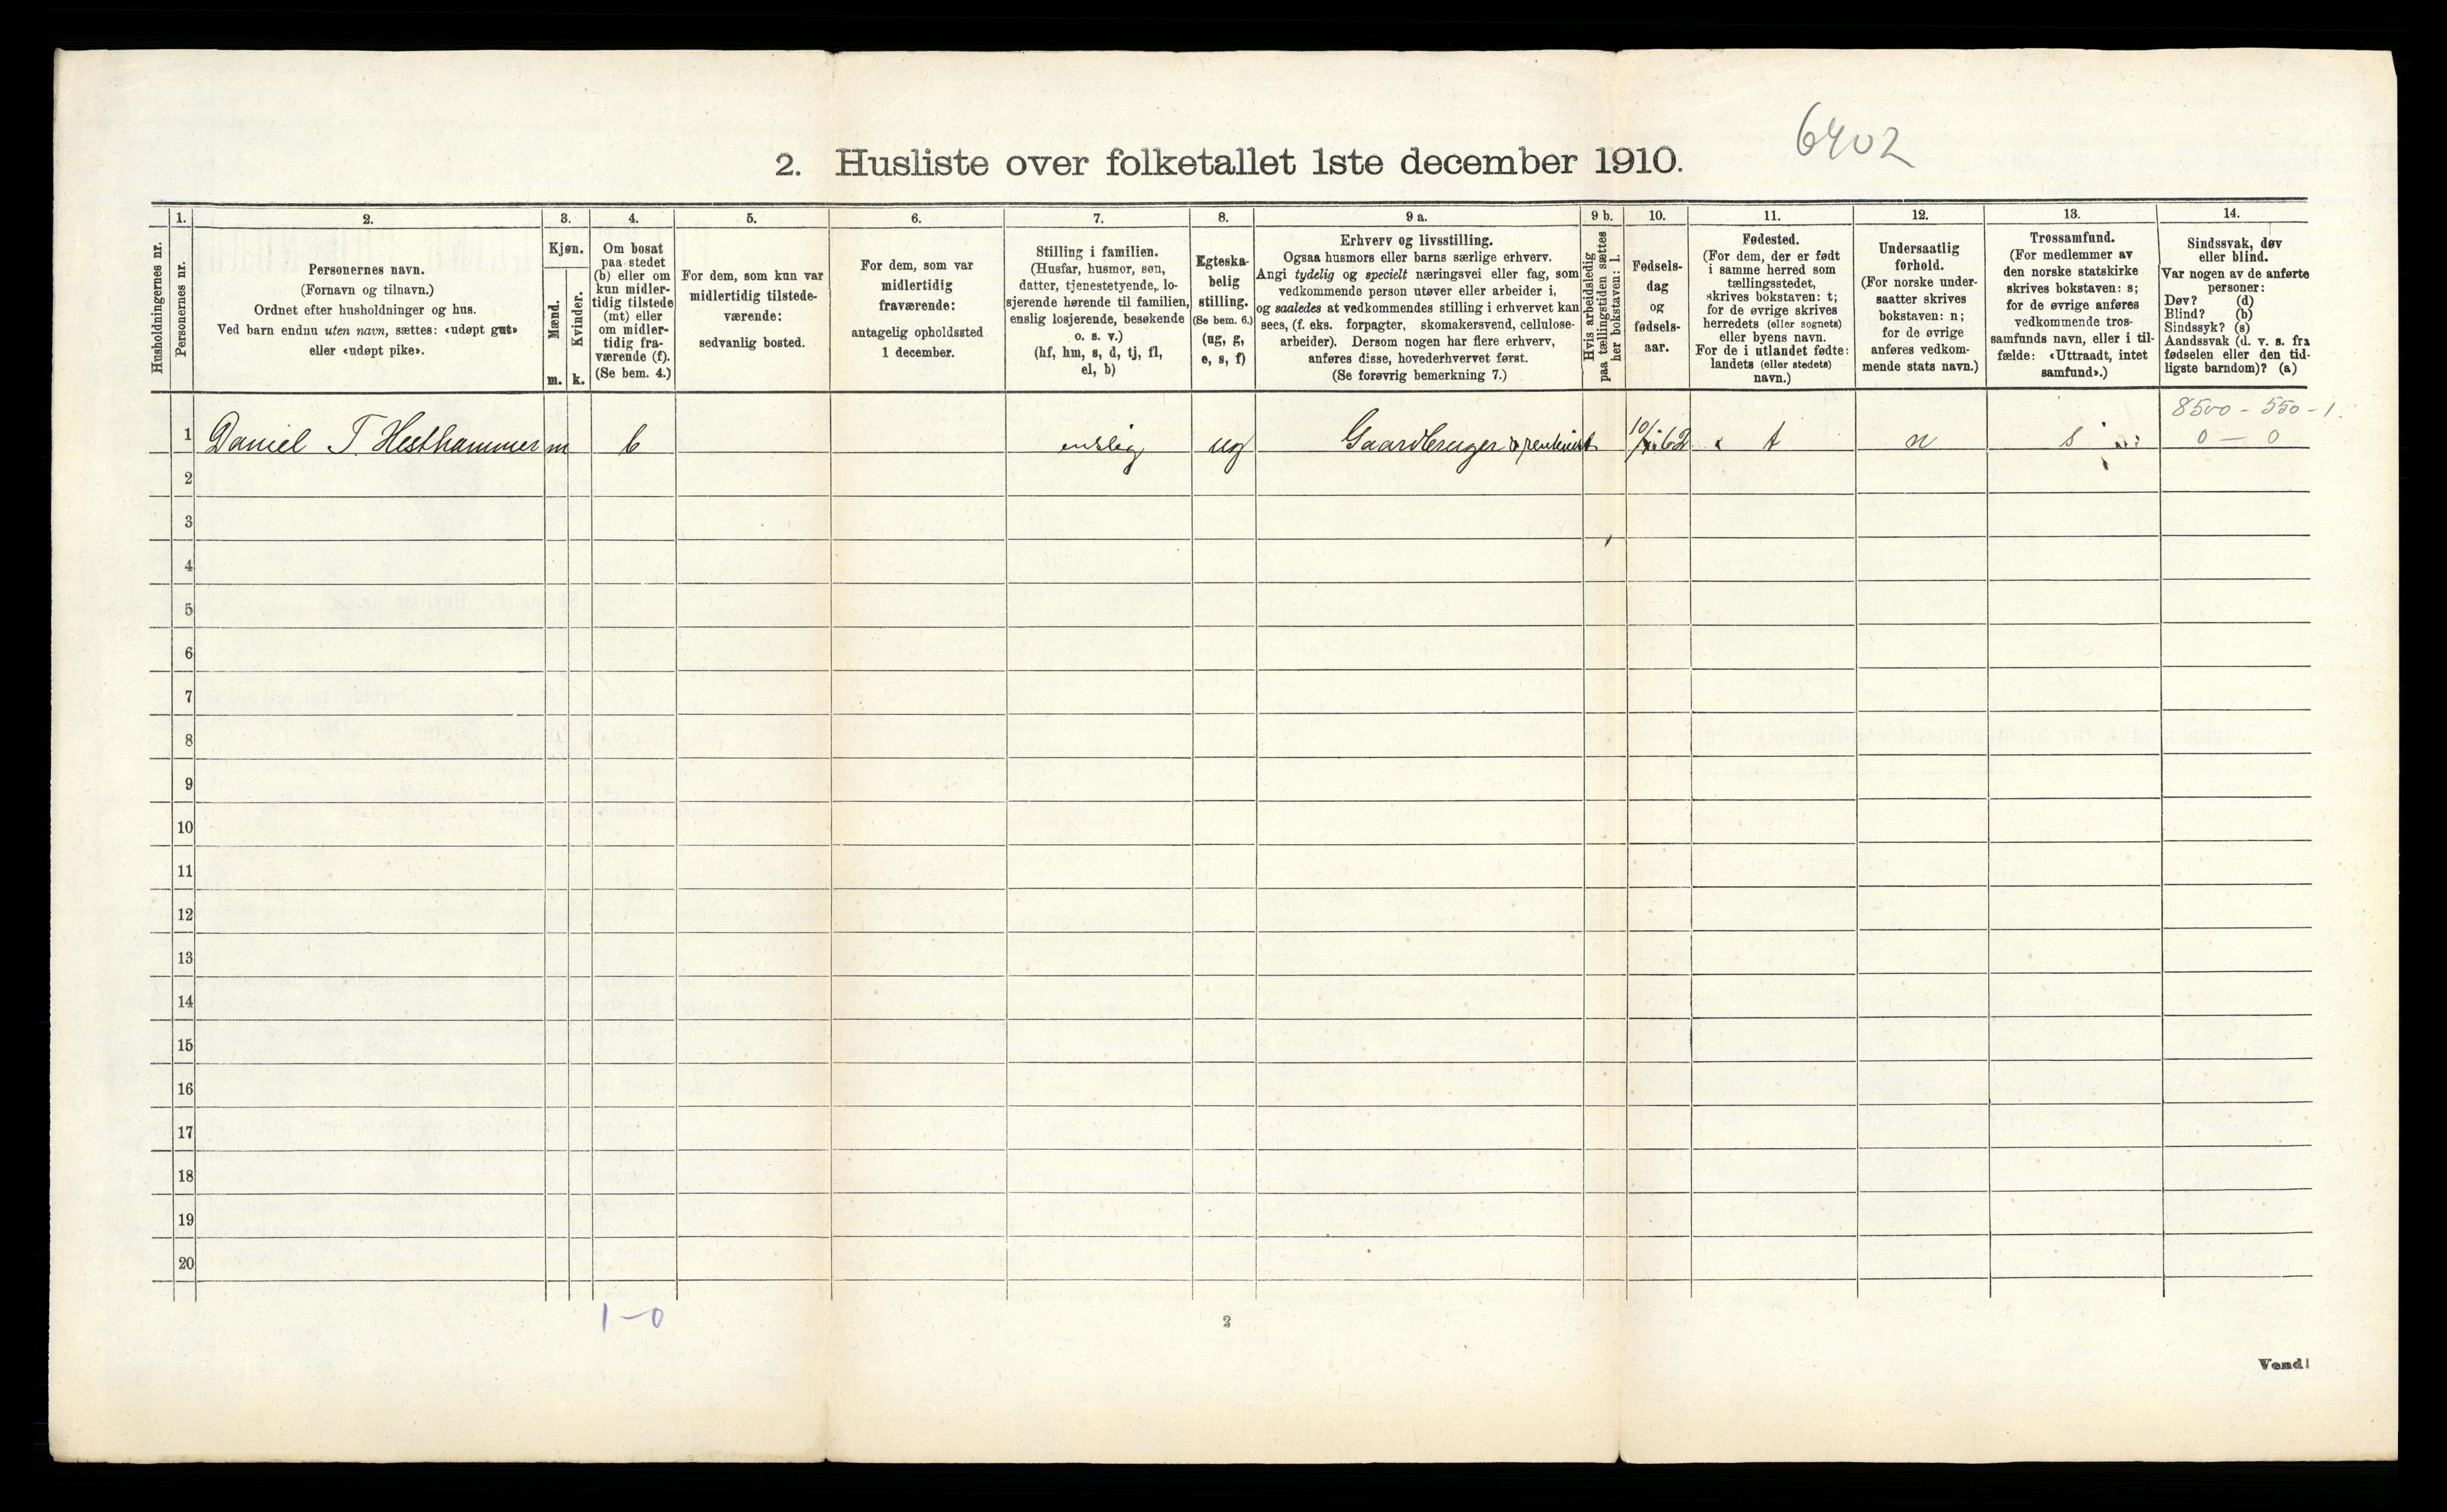 6402
2. Husliste over folketallet 1ste december 1910.
Husholdningernes nr.
1.
Personernes nr.
2.
Personernes navn.
(Fornavn og tilnavn.)
Ordnet efter husholdninger og hus.
Ved barn endnu uten navn, sættes: «udøpt gut»
eller «udøpt pike».
3.
Kjøn.
Mænd.
Kvinder.
m. k.
4.
Om bosat
paa stedet
(b) eller om
kun midler-
tidig tilstede
(mt) eller
om midler-
tidig fra-
værende (f).
(Se bem. 4.)
5.
For dem, som kun var
midlertidig tilstede-
værende:
sedvanlig bosted.
6.
For dem, som var
midlertidig
fraværende:
antagelig opholdssted
1 december.
7.
Stilling i familien.
(Husfar, husmor, søn,
datter, tjenestetyende, lo-
sjerende hørende til familien,
enslig losjerende, besøkende
o. s. v.)
(hf, hm, s, d, tj, fl,
el, b)
8.
Egteska-
belig
stilling.
(Se bem. 6.)
(ug, g,
e, s, f)
9 a.
Erhverv og livsstilling.
Ogsaa husmors eller barns særlige erhverv.
Angi tydelig og specielt næringsvei eller fag, som
vedkommende person utøver eller arbeider i,
og saaledes at vedkommendes stilling i erhvervet kan
sees, (f. eks. forpagter, skomakersvend, cellulose-
arbeider). Dersom nogen har flere erhverv,
anføres disse, hovederhvervet først.
(Se forøvrig bemerkning 7.)
9 b.
Hvis arbeidsledig
paa tællingstiden sættes
her bokstaven: l.
10.
Fødsels-
dag
og
fødsels-
aar.
11.
Fødested.
(For dem, der er født
i samme herred som
tællingsstedet,
skrives bokstaven: t;
for de øvrige skrives
herredets (eller sognets)
eller byens navn.
For de i utlandet fødte:
landets (eller stedets)
navn.)
12.
Undersaatlig
forhold.
(For norske under-
saatter skrives
bokstaven: n;
for de øvrige
anføres vedkom-
mende stats navn.)
13.
Trossamfund.
(For medlemmer av
den norske statskirke
skrives bokstaven: s;
for de øvrige anføres
vedkommende tros-
samfunds navn, eller i til-
fælde: «Uttraadt, intet
samfund».)
14.
Sindssvak, døv
eller blind.
Var nogen av de anførte
personer:
Døv? (d)
Blind? (b)
Sindssyk? (s)
Aandssvak (d. v. s. fra
fødselen eller den tid-
ligste barndom)? (a)
8500 - 550 - 1.
1 Daniel T. Hesthammer m b enslig ug Gaardbruger & rentenist 62 t n s 0 — 0
2
3
4
5
6
7
8
9
10
11
12
13
14
15
16
17
18
19
20
1-0
2
Vend!